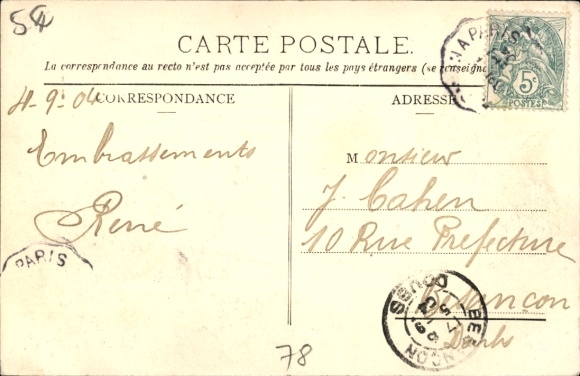 54
CARTE POSTALE.
La correspondance au recto n'est pas acceptée par tous les pays étrangers (se renseigne
CORRESPONDANCE
ADRESSE
4-9-04
Embrassements
René
PARIS
A PARIS
5c
POSTES
Monsieur
J. Cahen
10 Rue Préfecture
Besançon
Doubs
BESANÇON
DOUBS
78